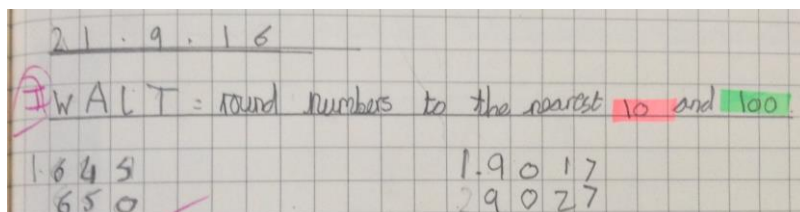 21.9.16
I WALT: round numbers to the nearest 10 and 100.
1. 645
650
1. 9017
2 9027